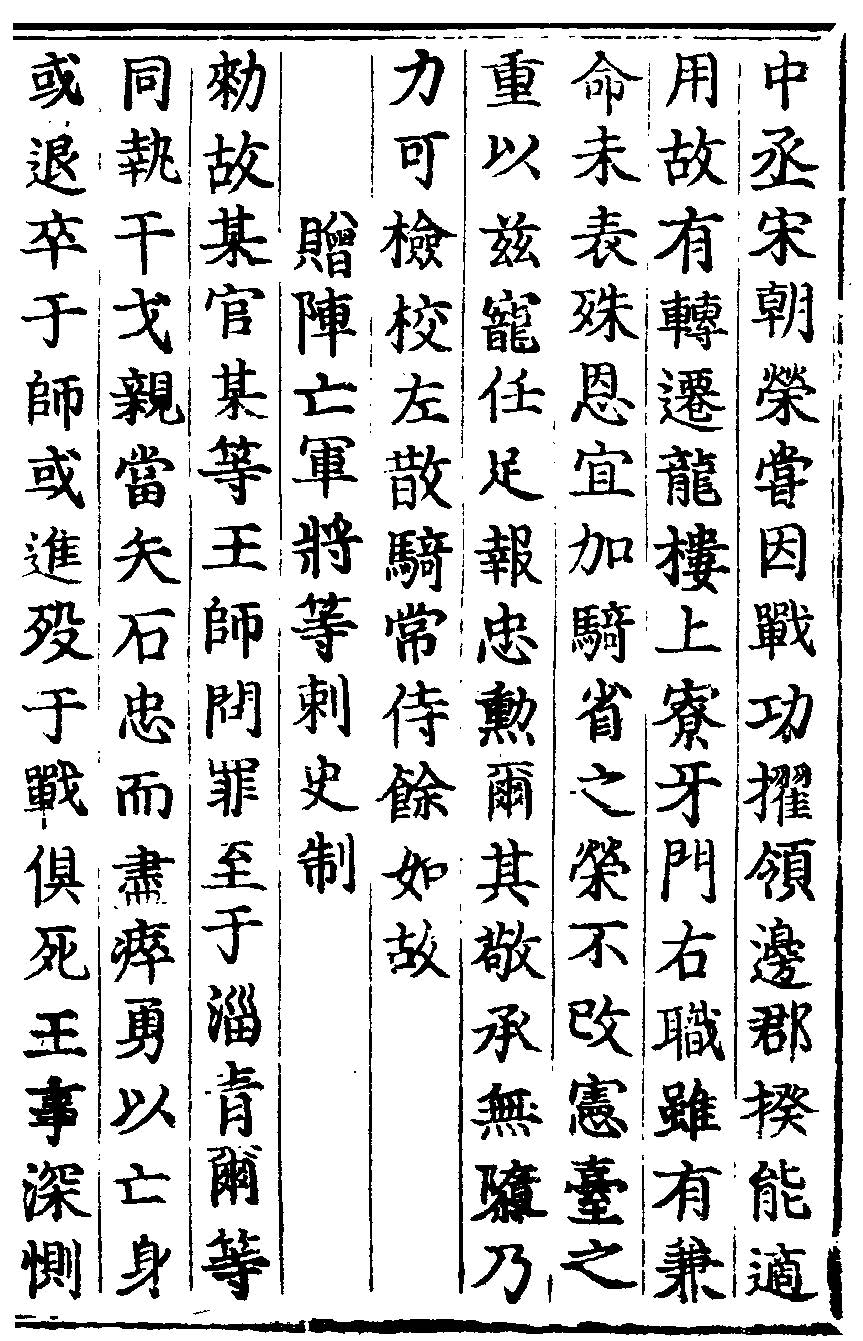 中丞宋朝榮嘗因戰功擢領邊郡揆能適
用故有轉遷龍樓上寮牙門右職雖有兼
命未表殊恩宜加騎省之榮不改憲臺之
重以玆寵任足報忠勳爾其敬承無隳乃
力可檢校左散騎常侍餘如故
贈陣亡軍將等刺史制
勑故某官某等王師問罪至于淄青爾等
同執干戈親當矢石忠而盡瘁勇以亡身
或退卒于師或進歿于戰俱死王事深惻